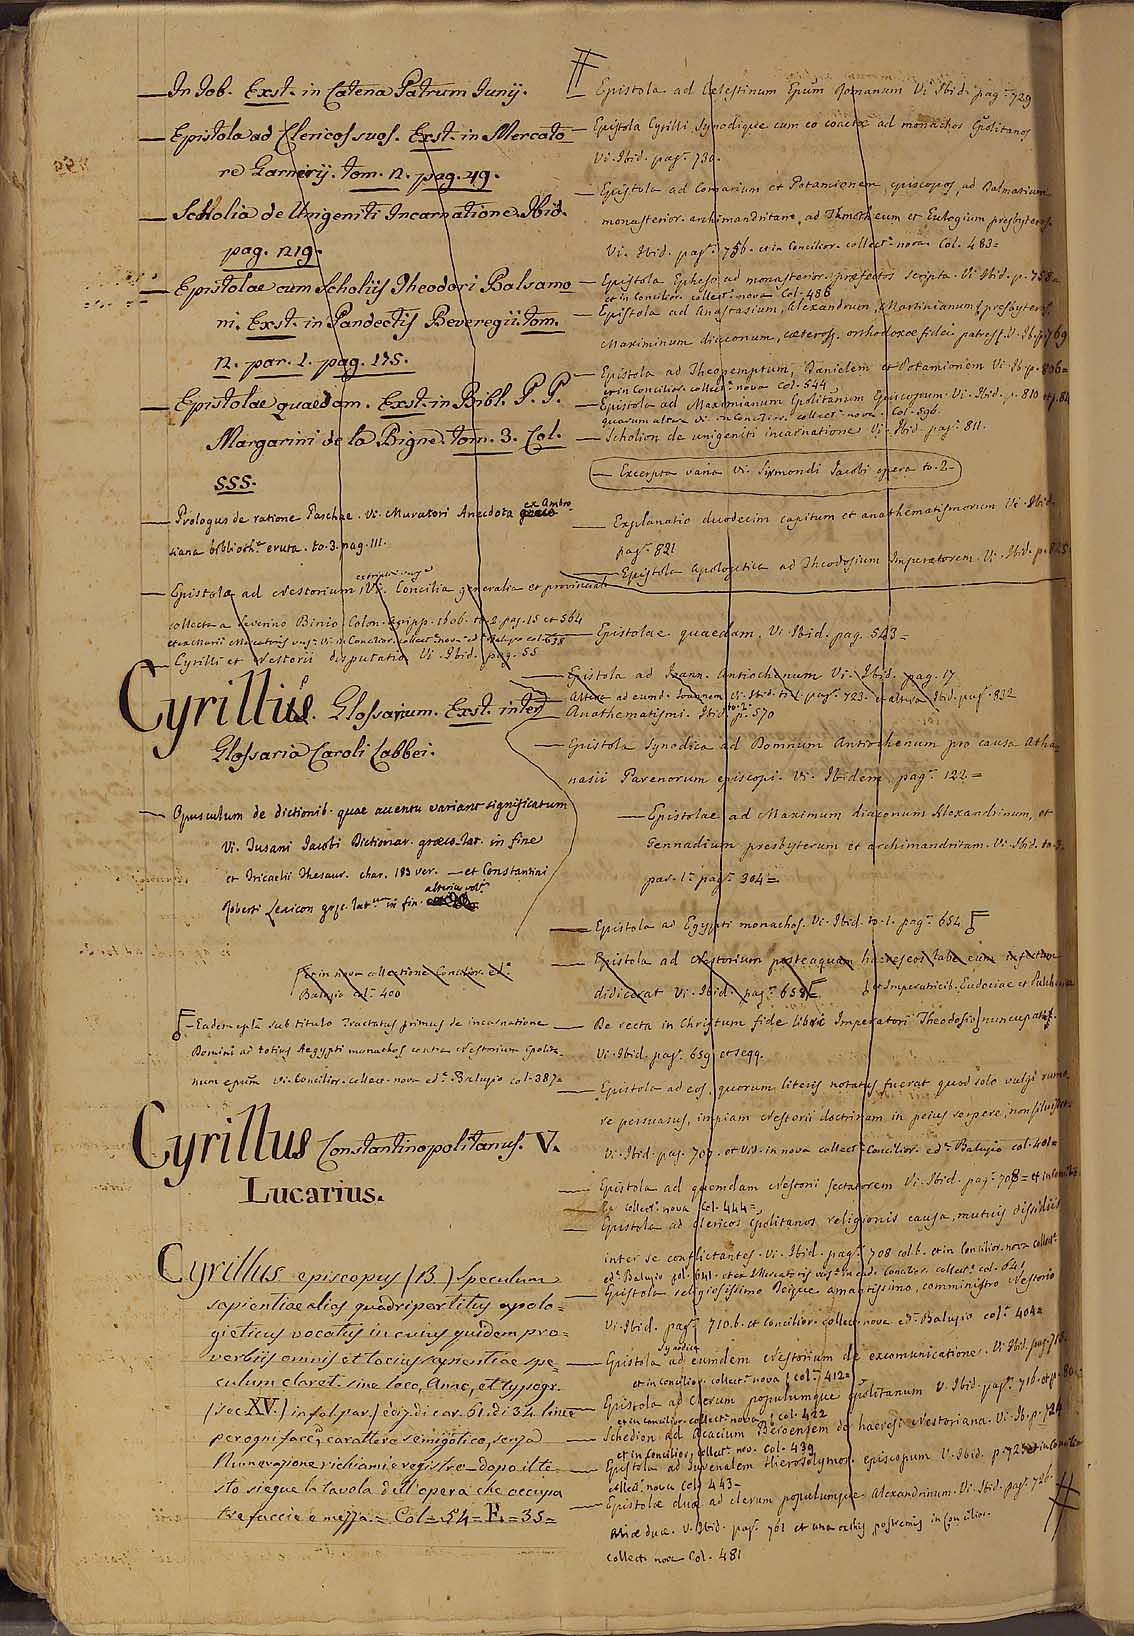 In Iob. Exst. in Catena Patrum Iunij.
Epistola ad Clericos suos. Exst. in Mercato
re Garnerij. tom. 2. pag. 49.
Scholia de Unigeniti Incarnatione. Ibid.
pag. 219.
Epistolae cum Scholiis Theodori Balsamo
ni. Exst. in Pandectis Beveregii. tom.
2. par. 1. pag. 175.
Epistolae quaedam. Exst. in Bibl. P. P.
Margarini de la Bigne. tom. 3. Col.
555.
ex Ambro
Prologus de ratione Paschae. Vi. Muratori Anecdota
siana biblioth. eruta. to. 3. pag. 111.
Epistola ad Nestorium Vi. Concilia generalia et provincialia
collecta a Severino Binio Colon. Agripp. 1606. to. 2 pag. 15 et 564
Cyrilli et Nestorii disputatio Vi. Ibid. pag. 55
Cyrillus. Glossarium. Exst. inter
Glossaria Caroli Labbei.
Opusculum de dictionib. quae accentu variant significatum
Vi. Tusani Jacobi Dictionar. graeco-lat. in fine
et Tricaelii Thesaur. char. 183 ver. — et Constantini
alterius vol.
Roberti Lexicon graec. lat. in fin.
et in nova collectione Concilior. ed.
Balugio col. 400
Eadem epla sub titulo Tractatus primus de incarnatione
Domini ad totius Aegypti monachos contra Nestorium Cpolita
num epum Vi. Concilior. collect. nova ed. Balugio col. 387=
Cyrillus Constantinopolitanus. V.
Lucarius.
Cyrillus episcopus (B.) Speculum
sapientiae alias quadripartitus apolo=
gieticus vocatus in cuius quidem pro=
verbiis omnis et tocius sapientiae spe=
culum claret. sine loco, Anno, et typogr.
(sec. XV.) in fol. par. ediz. di car. 61. di 34. linee
per ogni facc. carattere semigotico, senza
Numerazione richiami e registro — dopo il te=
sto siegue la tavola dell'opera che occupa
tre faccie e mezza. = Col = 54 = F. = 35 =
Epistola ad Celestinum Epum Romanum Vi Ibid. pag. 729
Epistola Cyrilli, Synodique cum eo coactae ad monachos Cpolitanos
Vi. Ibid. pag. 730.
Epistola ad Comarium et Potamionem episcopos, ad Dalmatium
monasterior. archimandritam, ad Timotheum et Eulogium presbyteros.
Vi. Ibid. pag. 756. et in Concilior. collect. nova. Col. 483=
Epistola Epheso ad monasterior. praefectos scripta. Vi. Ibid. p. 758=
et in Concilior. collect. nova Col. 486
Epistola ad Anastasium, Alexandrum, Martinianum, presbyteros,
Maximinum diaconum, caeteros. orthodoxae fidei patres. V. Ib. p. 769
Epistola ad Theopemptum, Danielem et Potamionem Vi. Ib. p. 806=
et in Concilior. collect. nova col. 544
Epistola ad Maximianum Cpolitanum Episcopum. Vi. Ibid. p. 810
quarum altera vi. in Concilior. collect. nova. Col. 596.
Scholion de unigeniti incarnatione Vi. Ibid. pag. 811.
Excerpta varia Vi. Sirmondi Jacobi opera to. 2.
Explanatio duodecim capitum et anathematismorum Vi. Ibid.
pag. 821
Epistola Apologetica ad Theodosium Imperatorem. Vi. Ibid. p. 825
Epistolae quaedam. Vi. Ibid. pag. 543=
Epistola ad Ioann. Antiochenum Vi. Ibid. pag. 17
Altera ad eumd. Ioannem Vi. Ibid. to. 1. pag. 723. et altera Ibid. pag. 832
Anathematismi. Ibid. to. 2. p. 570
Epistola Synodica ad Domnum Antiochenum pro causa Atha
nasii Parenorum episcopi. Vi. Ibidem pag. 122=
Epistolae ad Maximum diaconum Alexandrinum, et
Gennadium presbyterum et archimandritam. Vi. Ibid. to. 3.
par. 1. pag. 304=
Epistola ad Egypti monachos. Vi. Ibid. to. 1. pag. 654
Epistola ad Nestorium posteaquam haereseos labe eum infectum
didicerat Vi. Ibid. pag. 658
et Imperatricib. Eudociae et Pulcheriae
De recta in Christum fide libri Imperatori Theodosio nuncupati.
Vi. Ibid. pag. 659 et seqq.
Epistola ad eos, quorum literis notatus fuerat quod solo vulgi rumo
re persuasus, impiam Nestorii doctrinam in peius serpere, non siluisset
Vi. Ibid. pag. 707. et Vid. in nova collect. Concilior. ed. Balugio col. 401=
Epistola ad quemdam Nestorii sectatorem Vi. Ibid. pag. 708=
collect. nova Col. 444=
Epistola ad clericos Cpolitanos religionis causa, mutuis dissidiis
inter se conflictantes. Vi. Ibid. pag. 708 col. b. et in Concilior. nova collect.
Epistola religiosissimo Deique amantissimo, comministro Nestorio
Vi. Ibid. pag. 710. b. et Concilior. collect. nova ed. Balugio col. 404=
Synodica
Epistola ad eumdem Nestorium de excomunicatione. Vi. Ibid. pag. 71
et in concilior. collect. nova col. 412=
Epistola ad clerum populumque Cpolitanum V. Ibid. pag. 716.
et in concilior. collect. nova col. 422
Schedion ad Acacium Beroensem de haeresi Nestoriana. Vi. Ib. p. 724
et in Concilior. collect. nov. Col. 439
Epistola ad Juvenalem Hierosolymor. episcopum V. Ibid. p. 725 et in Concilior.
collect. nova Col. 443=
Epistolae duae ad clerum populumque Alexandrinum. Vi. Ibid. pag. 726.
Aliae duae. V. Ibid. pag. 761 et una ex his postremis in Concilior.
collect. nova Col. 481